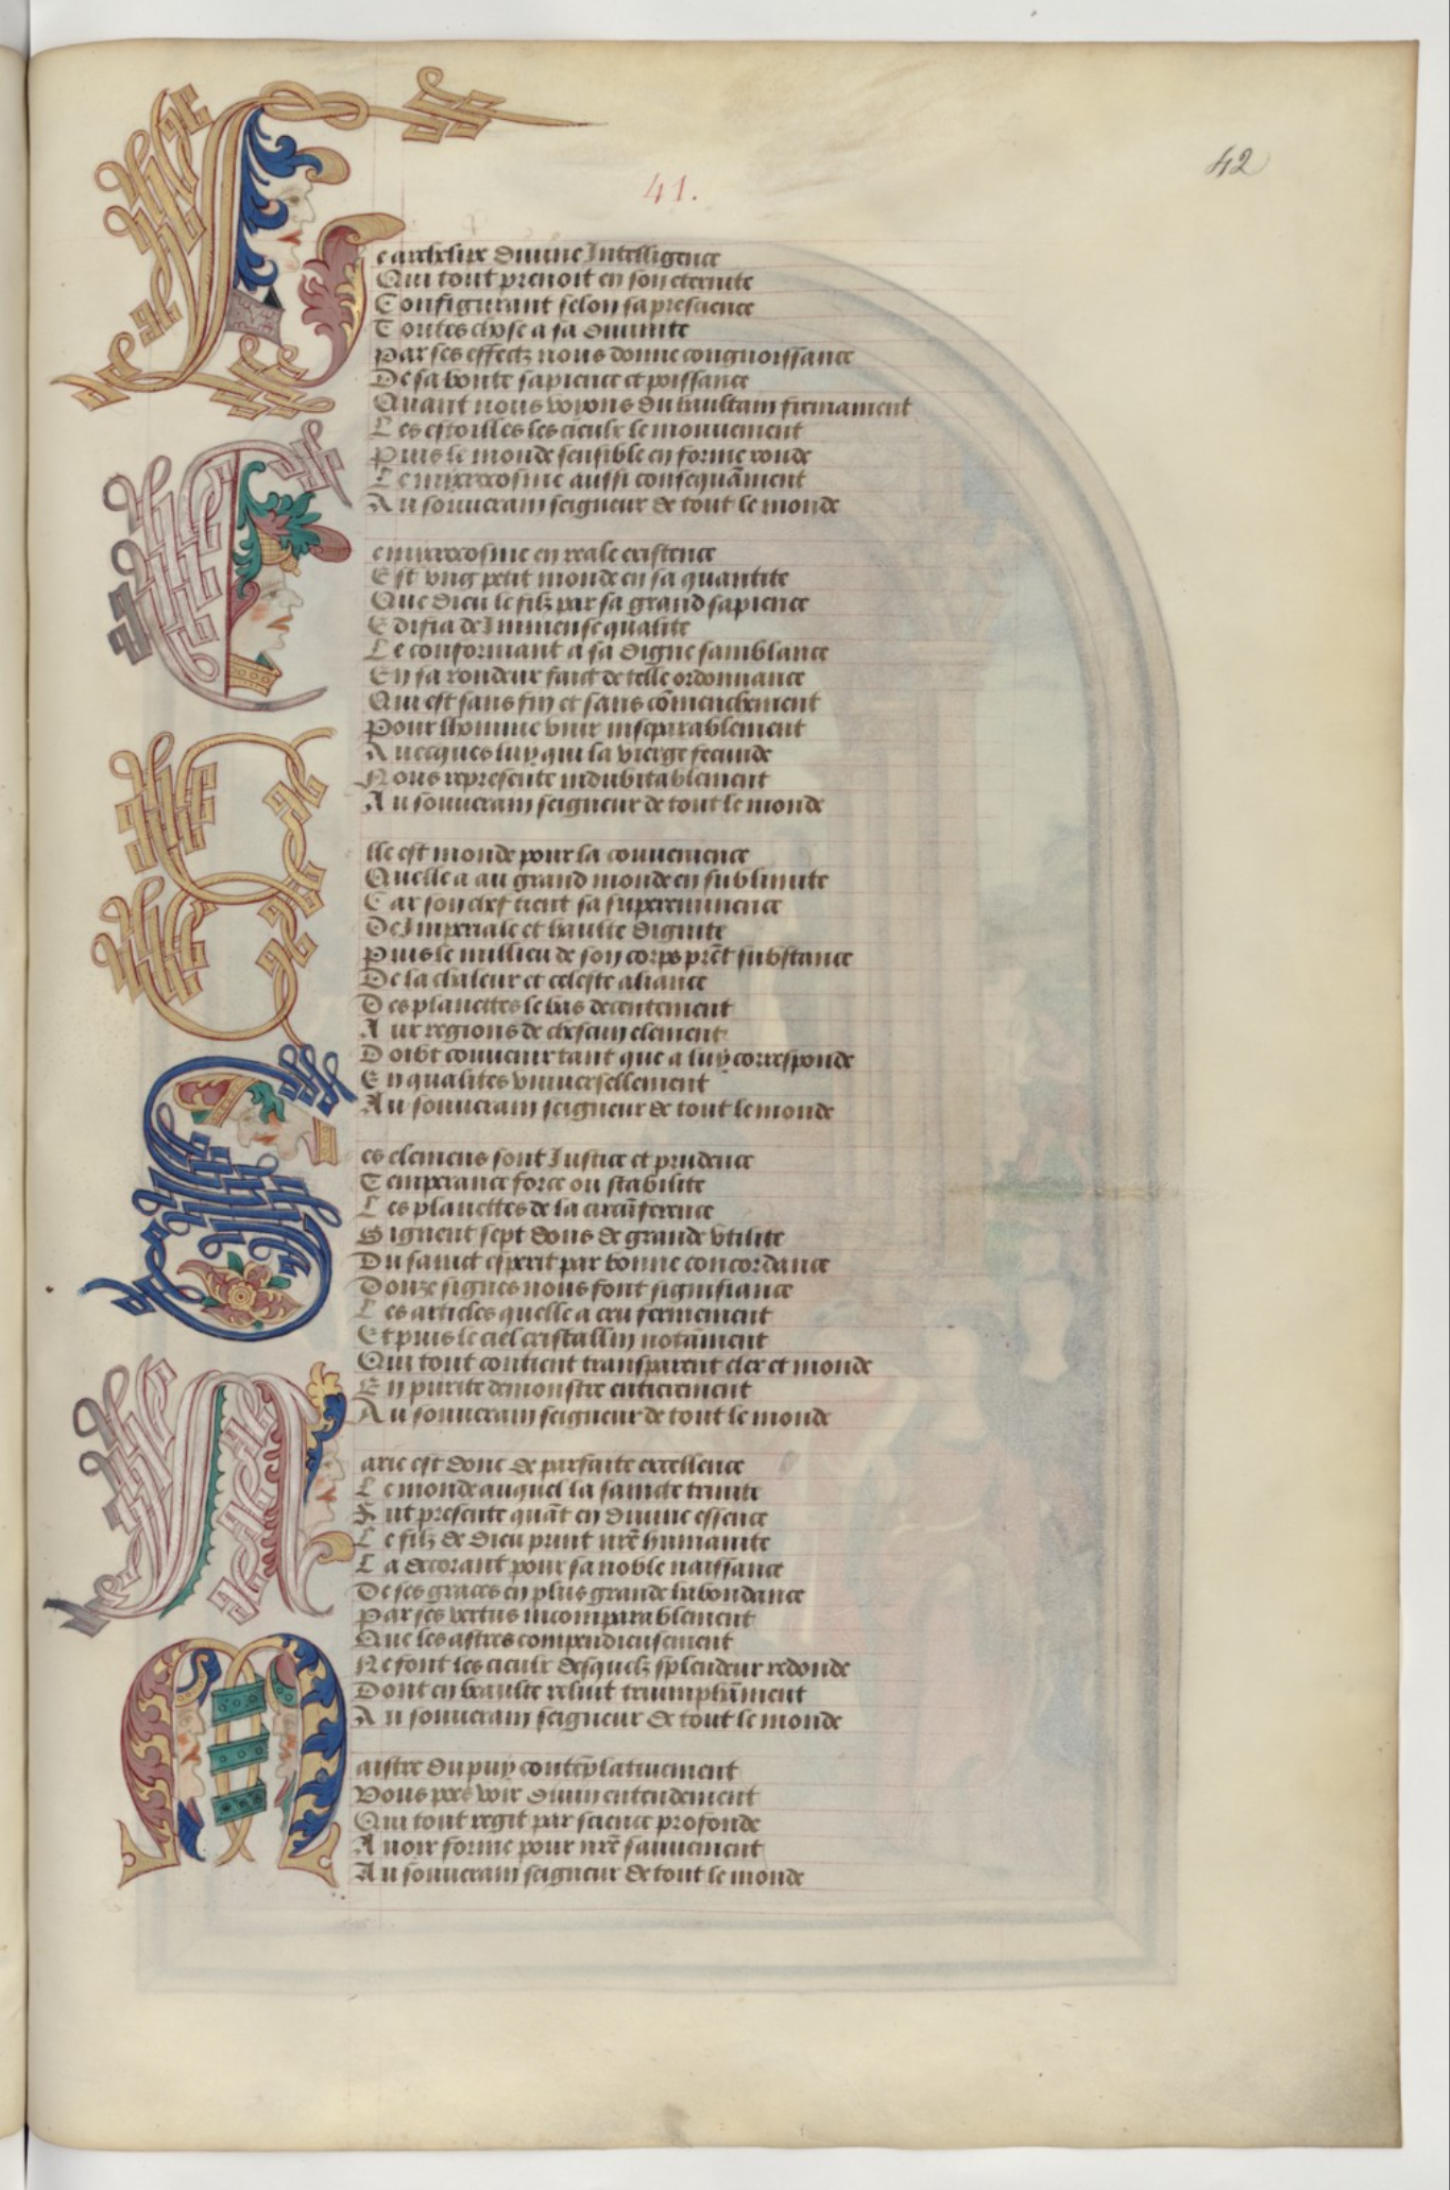 42
41.
Le archetipe diuine Intelligence
Qui tout preuoit en son eternite
Configurant selon sa prescience
Toutes chose a sa diuinite
Par ses effectz nous donne congnoissance
De sa bonte sapience et puissance
Quant nous voyons du haultain firmament
Les estoilles les cieulx le mouuement
Puis le monde sensible en forme ronde
Le microcosme aussi consequāment
Au souuerain seigneur de tout le monde
Ce microcosme en reale existence
Est vng petit monde en sa quantite
Que dieu le filz par sa grand sapience
Edifia de Immense qualite
Le conformant a sa digne samblance
En sa rondeur faict de telle ordonnance
Qui est sans fin et sans cōmenchement
Pour lhomme vnir inseparablement
Auecques luy qui la vierge fecunde
Nous represente indubitablement
Au souuerain seigneur de tout le monde
Elle est monde pour la conuenience
Quelle a au grand monde en sublimite
Car son chef tient sa supereminence
De Imperiale et haulte dignite
Puis le millieu de son corps prēt substance
De la chaleur et celeste aliance
Des planettes le bas decentement
Aux regions de chescun element
Doibt conuenir tant que a luy corresponde
En qualites vniuersellement
Au souuerain seigneur de tout le monde
Ses elemens sont Iustice et prudence
Temperance force ou stabilite
Les planettes de la circūference
Signent sept dons de grande vtilite
Du sainct esperit par bonne concordance
Douze signes nous font signifiance
Les articles quelle a creu fermement
Et puis le ciel cristallin notāment
Qui tout contient transparent cler et monde
En purite demonstre entierement
Au souuerain seigneur de tout le monde
Marie est donc de parfaite excellence
Le monde auquel la saincte trinite
Fut presente quāt en diuine essence
Le filz de dieu print nr̄e humanite
La decorant pour sa noble naissance
De ses graces en plus grande habondance
Par ses vertus incomparablement
Que les astres compendieusement
Ne font les cieulx desquelz splendeur redonde
Dont en beaulte reluit triumphāment
Au souuerain seigneur de tout le monde
Maistre du puy contēplatiuement
Vous poes voir diuin entendement
Qui tout regit par science profonde
Auoir forme pour nr̄e sauuement
Au souuerain seigneur de tout le monde